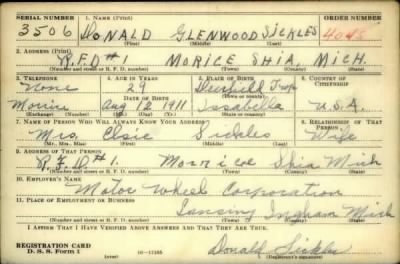 SERIAL NUMBER 1. NAME (Print) ORDER NUMBER
3506 DONALD GLENWOOD SICKLES 4045
(First) (Middle) (Last)
2. ADDRESS (Print)
R.F.D #1. MORICE SHIA, MICH.
(Number and street or R. F. D. number) (Town) (County) (State)
3. TELEPHONE 4. AGE IN YEARS 5. PLACE OF BIRTH 6. COUNTRY OF CITIZENSHIP
None 29 Deerfield Twp
DATE OF BIRTH (Town or county)
Aug 12 1911 Issabella U.S.A.
(Exchange) (Number) (Mo.) (Day) (Yr.) (State or country)
7. NAME OF PERSON WHO WILL ALWAYS KNOW YOUR ADDRESS 8. RELATIONSHIP OF THAT PERSON
Mrs. Elsie Sickles Wife
(Mr., Mrs., Miss) (First) (Middle) (Last)
9. ADDRESS OF THAT PERSON
R.F.D #1. Morrice Shia Mich
(Number and street or R. F. D. number) (Town) (County) (State)
10. EMPLOYER'S NAME
Motor Wheel Corporation
11. PLACE OF EMPLOYMENT OR BUSINESS
Lansing Ingham Mich
(Number and street or R. F. D. number) (Town) (County) (State)
I AFFIRM THAT I HAVE VERIFIED ABOVE ANSWERS AND THAT THEY ARE TRUE.
REGISTRATION CARD
D. S. S. Form 1 (over) 16-17105 Donald Sickles
(Registrant's signature)